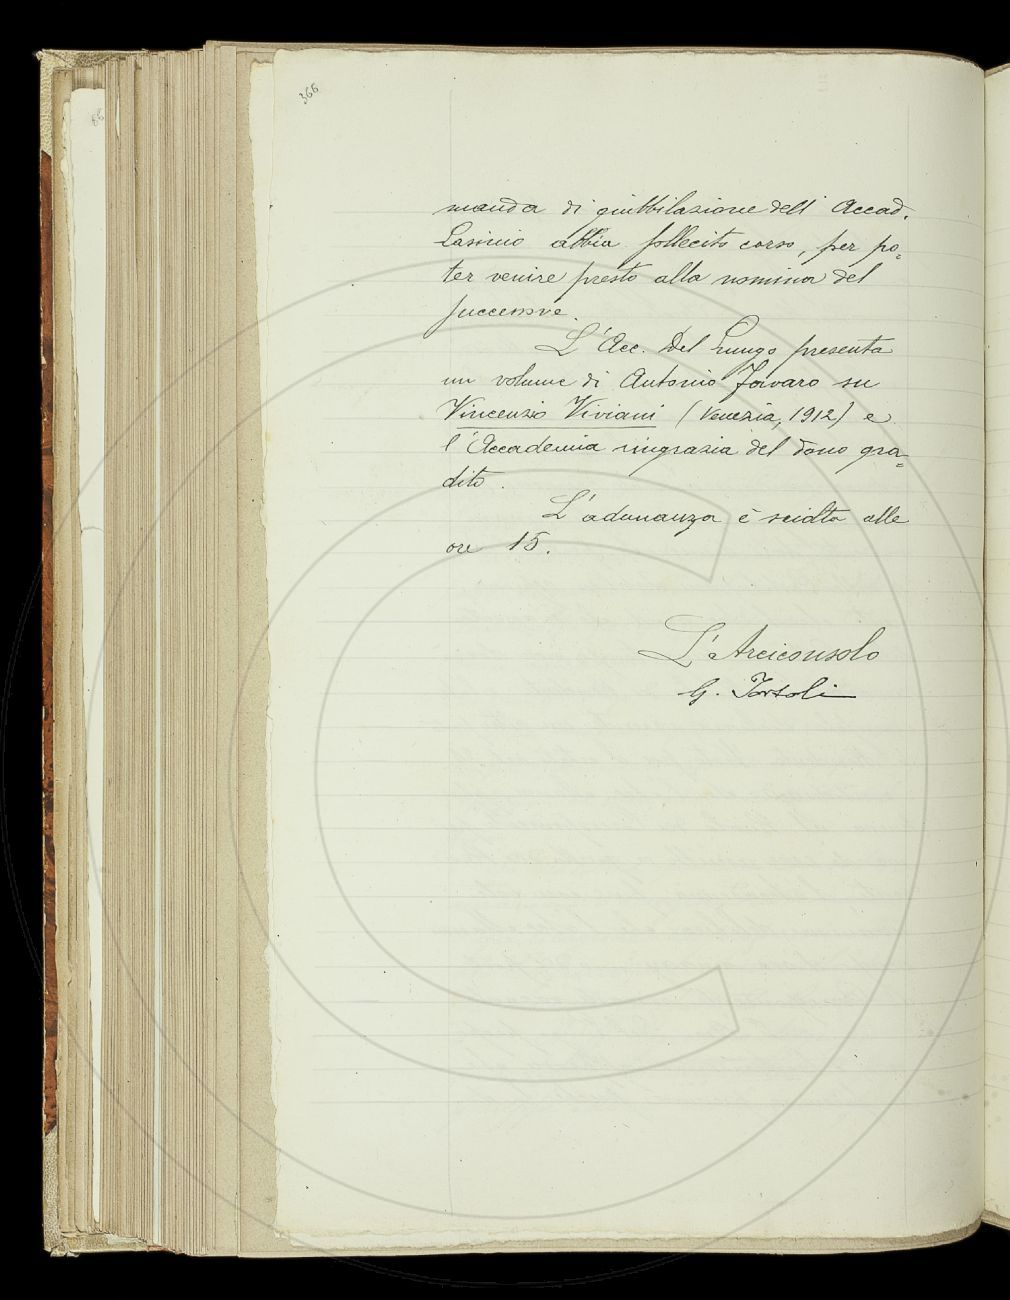 366
manda di giubbilazione dell'Accad.
Lasinio abbia sollecito corso, per po=
ter venire presto alla nomina del
successore.
L'Acc. Del Lungo presenta
un volume di Antonio Favaro su
Vincenzio Viviani (Venezia, 1912) e
l'Accademia ringrazia del dono gra=
dito.
L'adunanza è sciolta alle
ore 15.
L'Arciconsolo
G. Tortoli